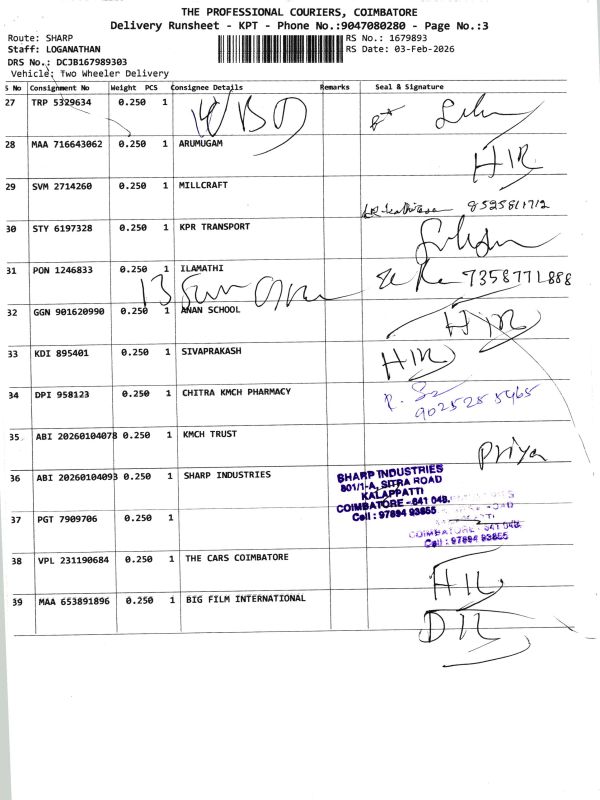 THE PROFESSIONAL COURIERS, COIMBATORE
Delivery Runsheet - KPT - Phone No.:9047080280 - Page No.:3
Route: SHARP
RS No.: 1679893
Staff: LOGANATHAN
RS Date: 03-Feb-2026
DRS No.: DCJB167989303
Vehicle: Two Wheeler Delivery
S No Consignment No Weight PCS Consignee Details Remarks Seal & Signature
27 TRP 5329634 0.250 1
28 MAA 716643062 0.250 1 ARUMUGAM HIR
29 SVM 2714260 0.250 1 MILLCRAFT 8525811712
30 STY 6197328 0.250 1 KPR TRANSPORT
31 PON 1246833 0.250 1 ILAMATHI 7358771888
32 GGN 901620990 0.250 1 ANAN SCHOOL HIR
33 KDI 895401 0.250 1 SIVAPRAKASH HIR
34 DPI 958123 0.250 1 CHITRA KMCH PHARMACY 9025255465
35 ABI 20260104078 0.250 1 KMCH TRUST Priya
36 ABI 20260104093 0.250 1 SHARP INDUSTRIES
SHARP INDUSTRIES
801/1-A, SITRA ROAD
KALAPPATTI
COIMBATORE - 641 048.
Cell : 97894 93855
COIMBATORE - 641 048.
Cell : 97894 93855
37 PGT 7909706 0.250 1
38 VPL 231190684 0.250 1 THE CARS COIMBATORE HIR
39 MAA 653891896 0.250 1 BIG FILM INTERNATIONAL DIR